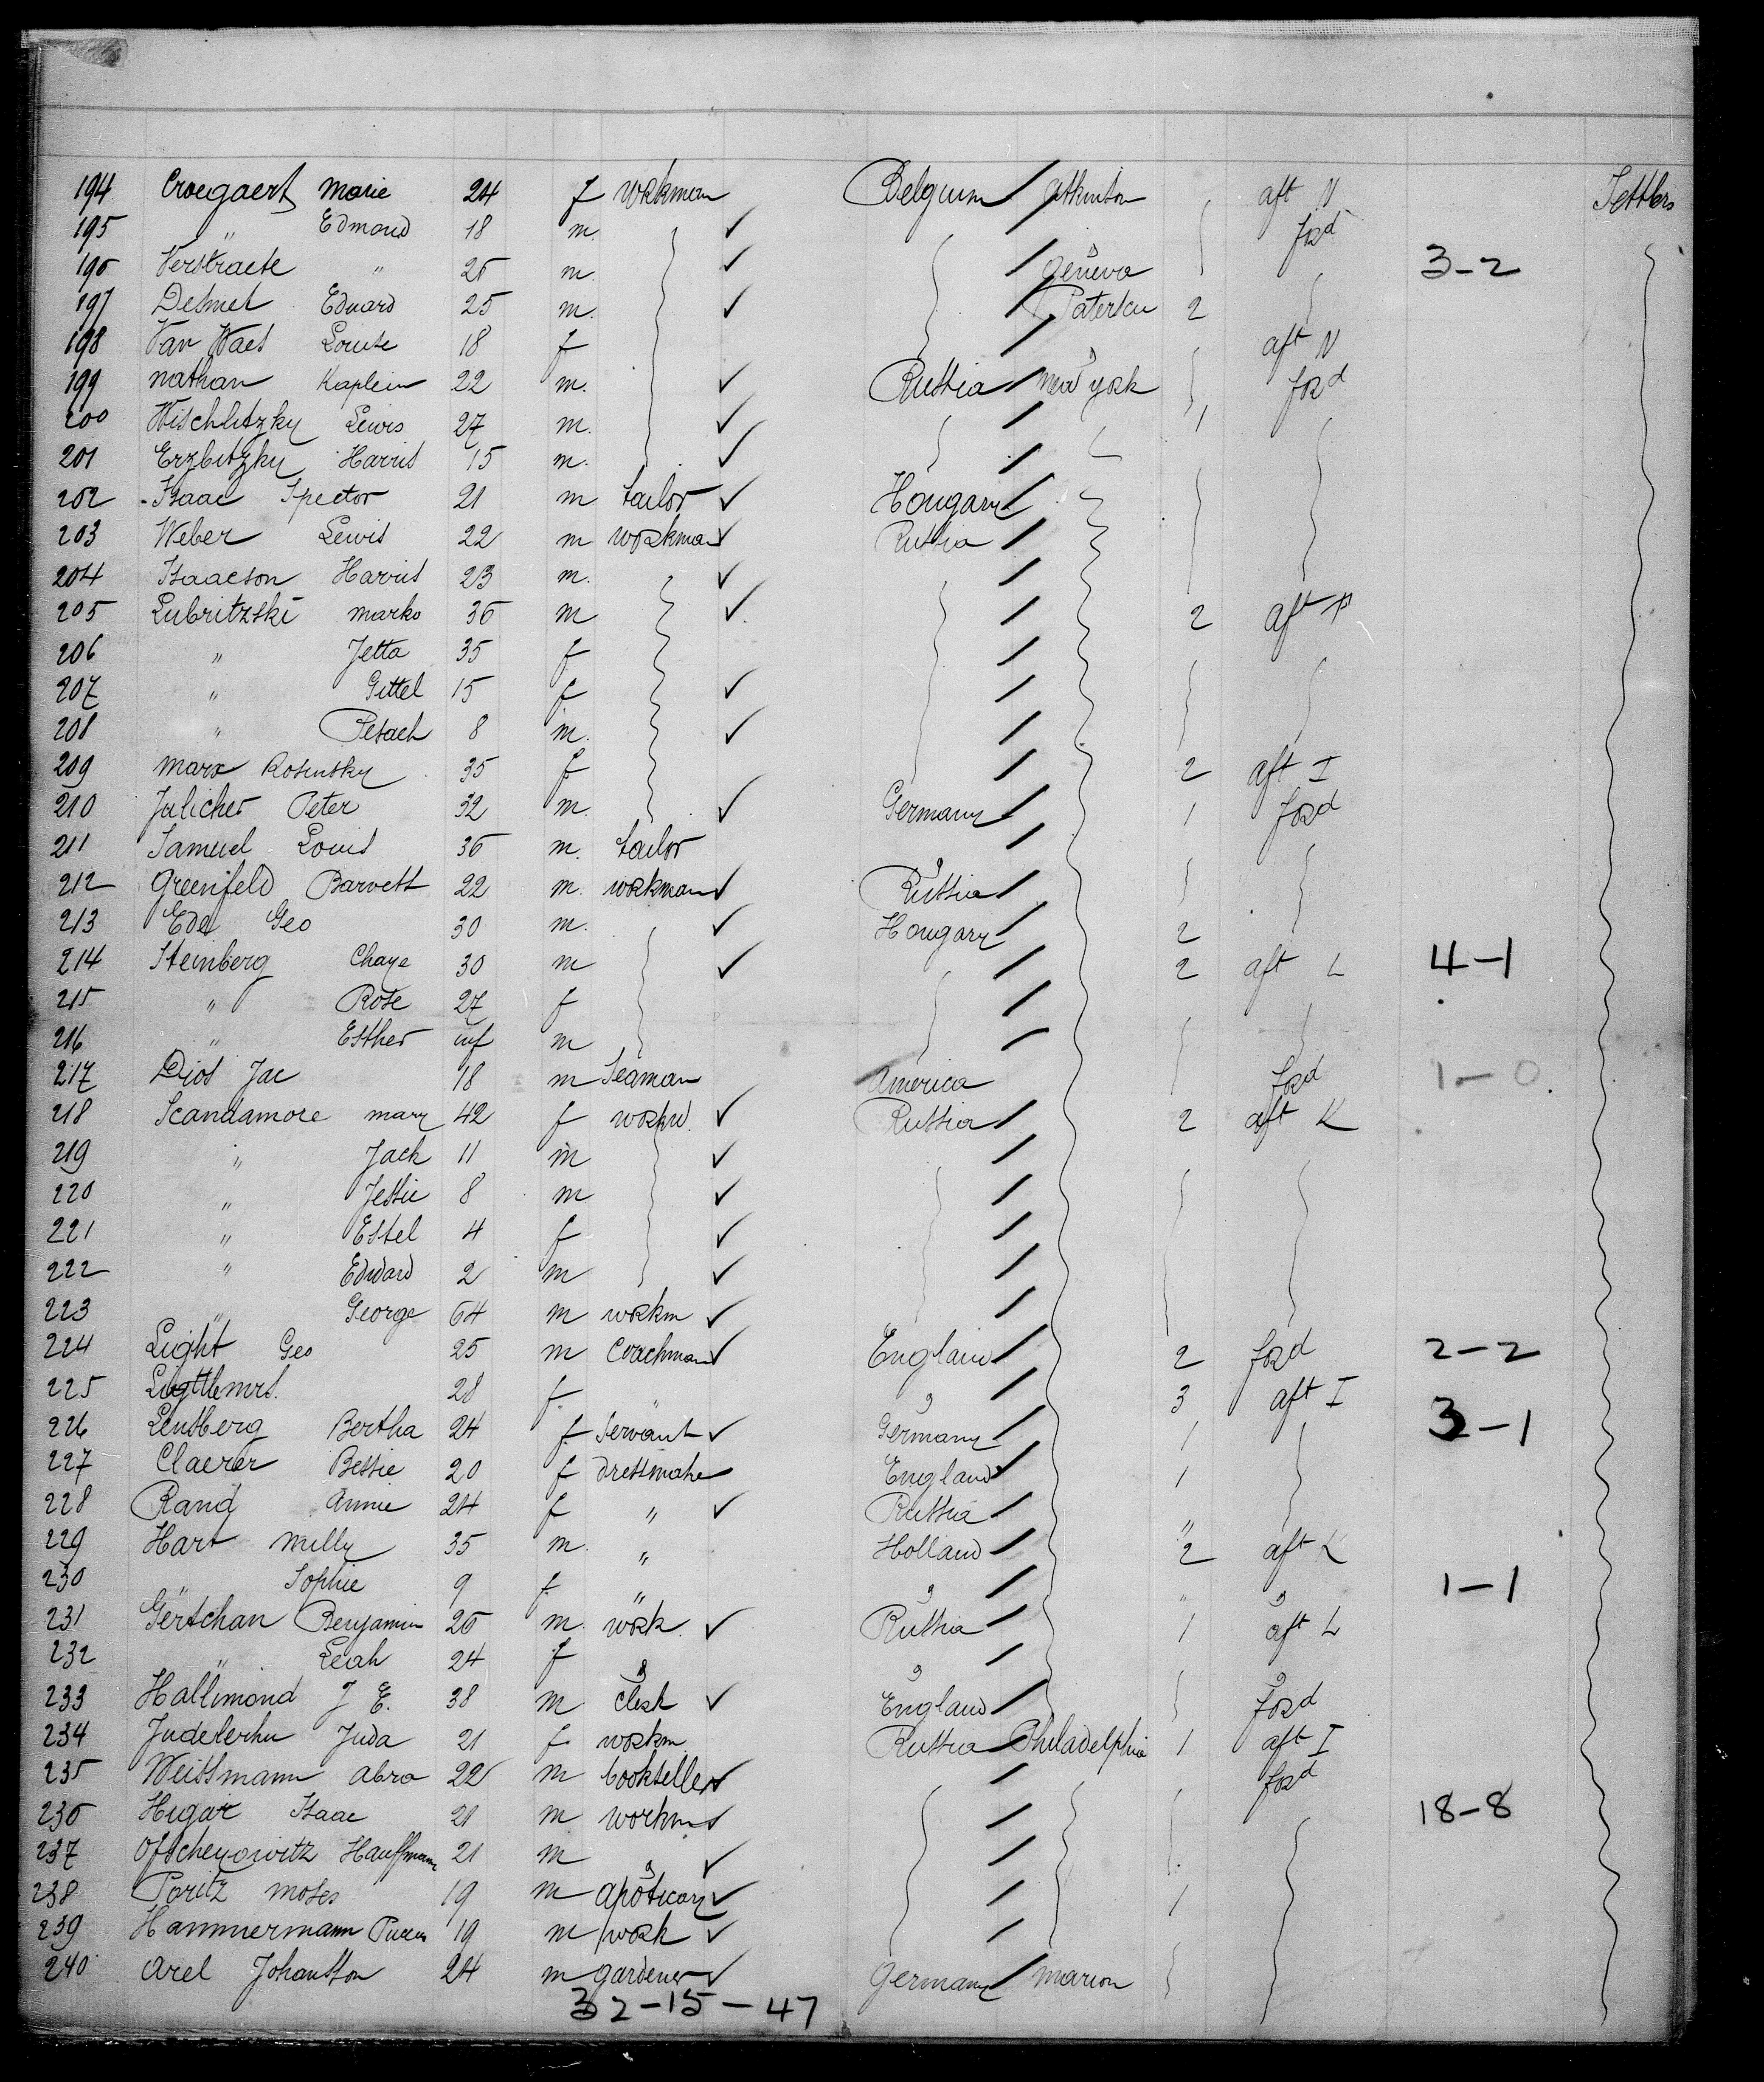 194 Croegaert Marie 24 f workman Belgium Atkinton aft N Settlers
195 " Edmond 18 m. ford
196 Verstraete " 26 m. Geneva 3-2
197 Desmet Eduard 25 m. Paterson 2
198 Van Waes Louise 18 f aft N
199 Nathan Kaplein 22 m. Russia New York ford
200 Wischlitzky Lewis 27 m. 1
201 Erzbitzky Harris 15 m.
202 Isaac Spector 21 m tailor Hongary
203 Weber Lewis 22 m workman Russia
204 Isaacson Harris 23 m.
205 Lubritzski Marks 36 m 2 aft
206 " Jetta 35 f
207 " Gittel 15 f
208 " Pesach 8 m.
209 Marx Rosinsky 35 f 2 aft I
210 Julicher Peter 32 m. Germany 1 ford
211 Samuel Louis 36 m. tailor
212 Greenfeld Barnett 22 m. workman Russia
213 Edel Geo 30 m. Hongary 2
214 Steinberg Chaye 30 m 2 aft L 4-1
215 " Rose 27 f
216 " Esther inf m
217 Dios Jac 18 m Seaman America ford 1-0
218 Scandamore Mary 42 f Russia 2 aft K
219 " Jack 11 m
220 " Jessie 8 m
221 " Estel 4 f
222 " Edward 2 m
223 " George 64 m workm
224 Light Geo 25 m Coachman England 2 ford 2-2
225 mrs. 28 f " 3 aft I
226 Lensberg Bertha 24 f Servant Germany 1 3-1
227 Claerer Bessie 20 f dressmake England 1
228 Rand Annie 24 f " Russia "
229 Hart Milly 35 m " Holland 2 aft K
230 " Sophie 9 f " " 1-1
231 Gertchan Benjamin 26 m. work Russia 1 aft L
232 " Leah 24 f
233 Hallimond J E. 38 m Clerk England ford
234 Juda 21 f workm Russia Philadelphia 1 aft I
235 Weissmann Abra 22 m bookseller ford
236 Higar Isaac 21 m workm 18-8
237 Hauffmann 21 m
238 Poritz Moses 19 m apoticary 1
239 Hammermann 19 m work
240 Arel Johansson 24 m gardener Germany Marion
32-15-47